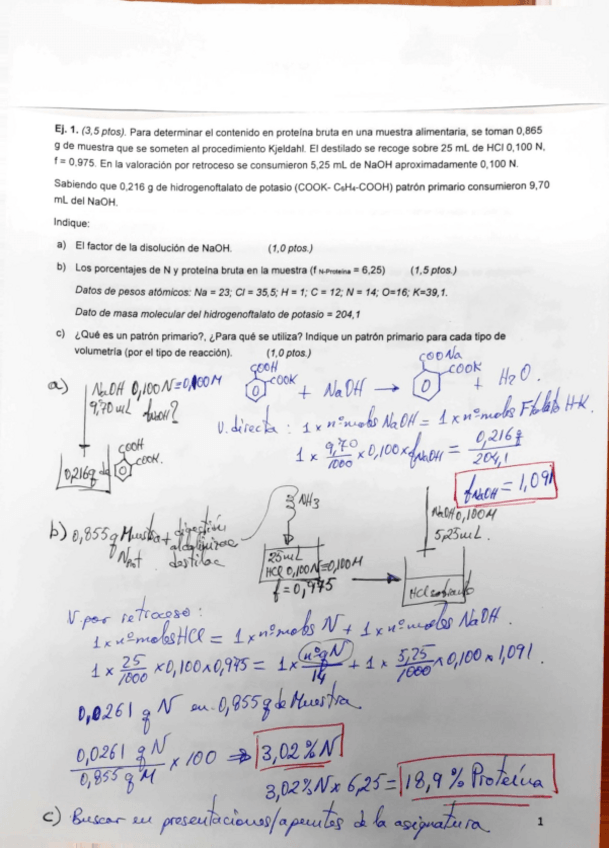 Ej. 1. (3,5 ptos). Para determinar el contenido en proteína bruta en una muestra alimentaria, se toman 0,865
g de muestra que se someten al procedimiento Kjeldahl. El destilado se recoge sobre 25 mL de HCl 0,100 N,
f = 0,975. En la valoración por retroceso se consumieron 5,25 mL de NaOH aproximadamente 0,100 N.
Sabiendo que 0,216 g de hidrogenoftalato de potasio (COOK- C₆H₄-COOH) patrón primario consumieron 9,70
mL del NaOH.
Indique:
a) El factor de la disolución de NaOH. (1,0 ptos.)
b) Los porcentajes de N y proteína bruta en la muestra (f N-Proteína = 6,25) (1,5 ptos.)
Datos de pesos atómicos: Na = 23; Cl = 35,5; H = 1; C = 12; N = 14; O=16; K=39,1.
Dato de masa molecular del hidrogenoftalato de potasio = 204,1
c) ¿Qué es un patrón primario?, ¿Para qué se utiliza? Indique un patrón primario para cada tipo de
volumetría (por el tipo de reacción). (1,0 ptos.)
a) NaOH 0,100N=0,100M
9,70mL fNaOH?
COOH
COOK + NaOH → COONa
COOK + H₂O.
V. directa: 1 x nº mols NaOH = 1 x nº mols Ftalato H-K.
1 x 9,70/1000 x 0,100 x fNaOH = 0,216g/204,1
0,216g de COOH
COOK.
fNaOH = 1,091
b) 0,855g Muestra + digestión
destilac
NH₃
25mL
HCl 0,100N=0,100M
f=0,975
NaOH 0,100M
5,25mL.
HCl sobrante
V. por retroceso:
1 x nº moles HCl = 1 x nº mols N + 1 x nº moles NaOH.
1 x 25/1000 x 0,100 x 0,975 = 1 x nº g N/14 + 1 x 5,25/1000 x 0,100 x 1,091.
0,0261 g N en 0,855 g de Muestra
0,0261 g N/0,855 g M x 100 ⇒ 3,02 % N
3,02%N x 6,25 = 18,9 % Proteína
c) Buscar en presentaciones/apuntes de la asignatura.
1